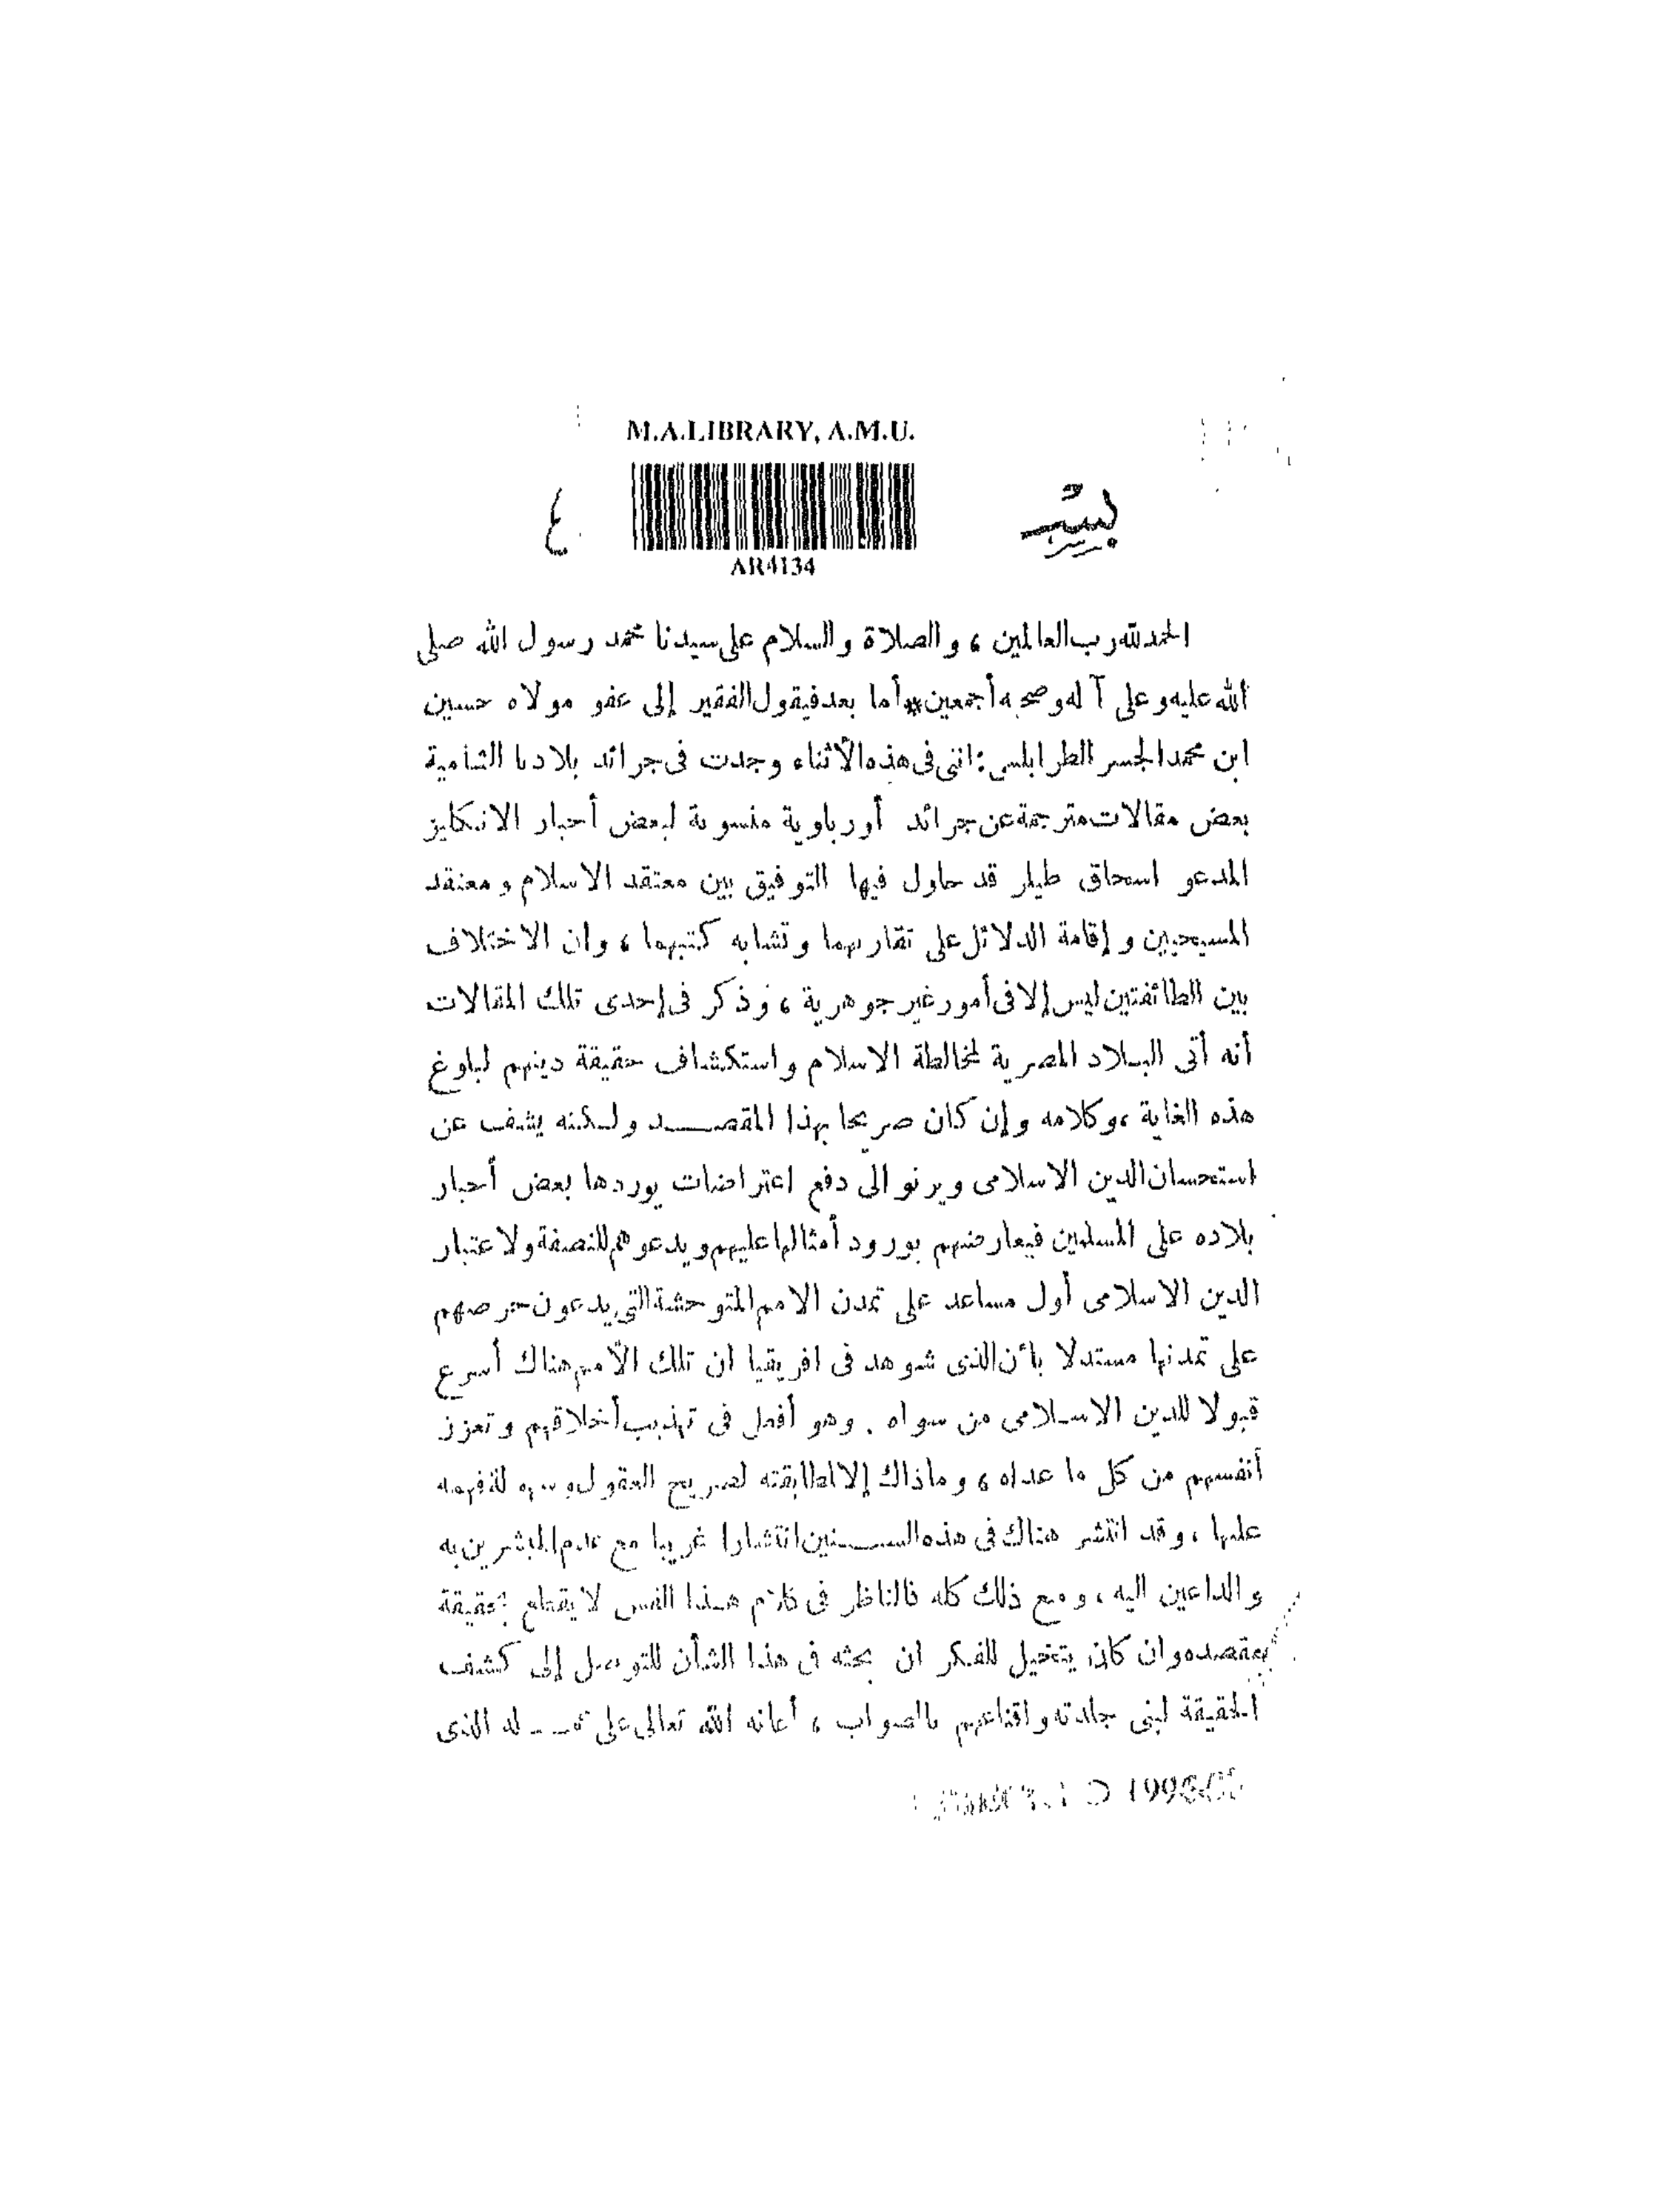 M.A.LIBRARY, A.M.U.
AR4134
الحمد لله رب العالمين ، والصلاة والسلام على سيدنا محمد رسول الله صلى
الله عليه وعلى آله وصحبه أجمعين * أما بعد فيقول الفقير إلى عفو مولاه حسين
ابن محمد الجسر الطرابلسى : اننى فى هذه الأثناء وجدت فى جرائد بلادنا الشامية
بعض مقالات مترجمة عن جرائد أورباوية منسوبة لبعض أحبار الانكليز
المدعو اسحاق طيلر قد حاول فيها التوفيق بين معتقد الاسلام ومعتقد
المسيحيين وإقامة الدلائل على تقاربهما وتشابه كتبهما ، وان الاختلاف
بين الطائفتين ليس إلا فى أمور غير جوهرية ، وذكر فى إحدى تلك المقالات
أنه أتى البلاد المصرية لمخالطة الاسلام واستكشاف حقيقة دينهم لبلوغ
هذه الغاية ، وكلامه وإن كان صريحا بهذا المقصد ولكنه يشف عن
استحسان الدين الاسلامى ويرنو الى دفع اعتراضات يوردها بعض أحبار
بلاده على المسلمين فيعارضهم بورود أمثالها عليهم ويدعوهم للنصفة ولاعتبار
الدين الاسلامى أول مساعد على تمدن الامم المتوحشة التى يدعون حرصهم
على تمدنها مستدلا بأن الذى شوهد فى افريقيا ان تلك الأمم هناك أسرع
قبولا للدين الاسلامى من سواه . وهو أفعل فى تهذيب أخلاقهم وتعزز
أنفسهم من كل ما عداه ، وما ذاك إلا لمطابقته لصريح العقول
عليها ، وقد انتشر هناك فى هذه السنين انتشارا غريبا مع عدم المبشرين به
والداعين اليه ، ومع ذلك كله فالناظر فى كلام هذا القس لا يقطع بحقيقة
مقصده وان كان يتخيل للفكر ان بحثه فى هذا الشأن للتوصل إلى كشف
الحقيقة لبنى جلدته واقناعهم بالصواب ، أعانه الله تعالى على الذى